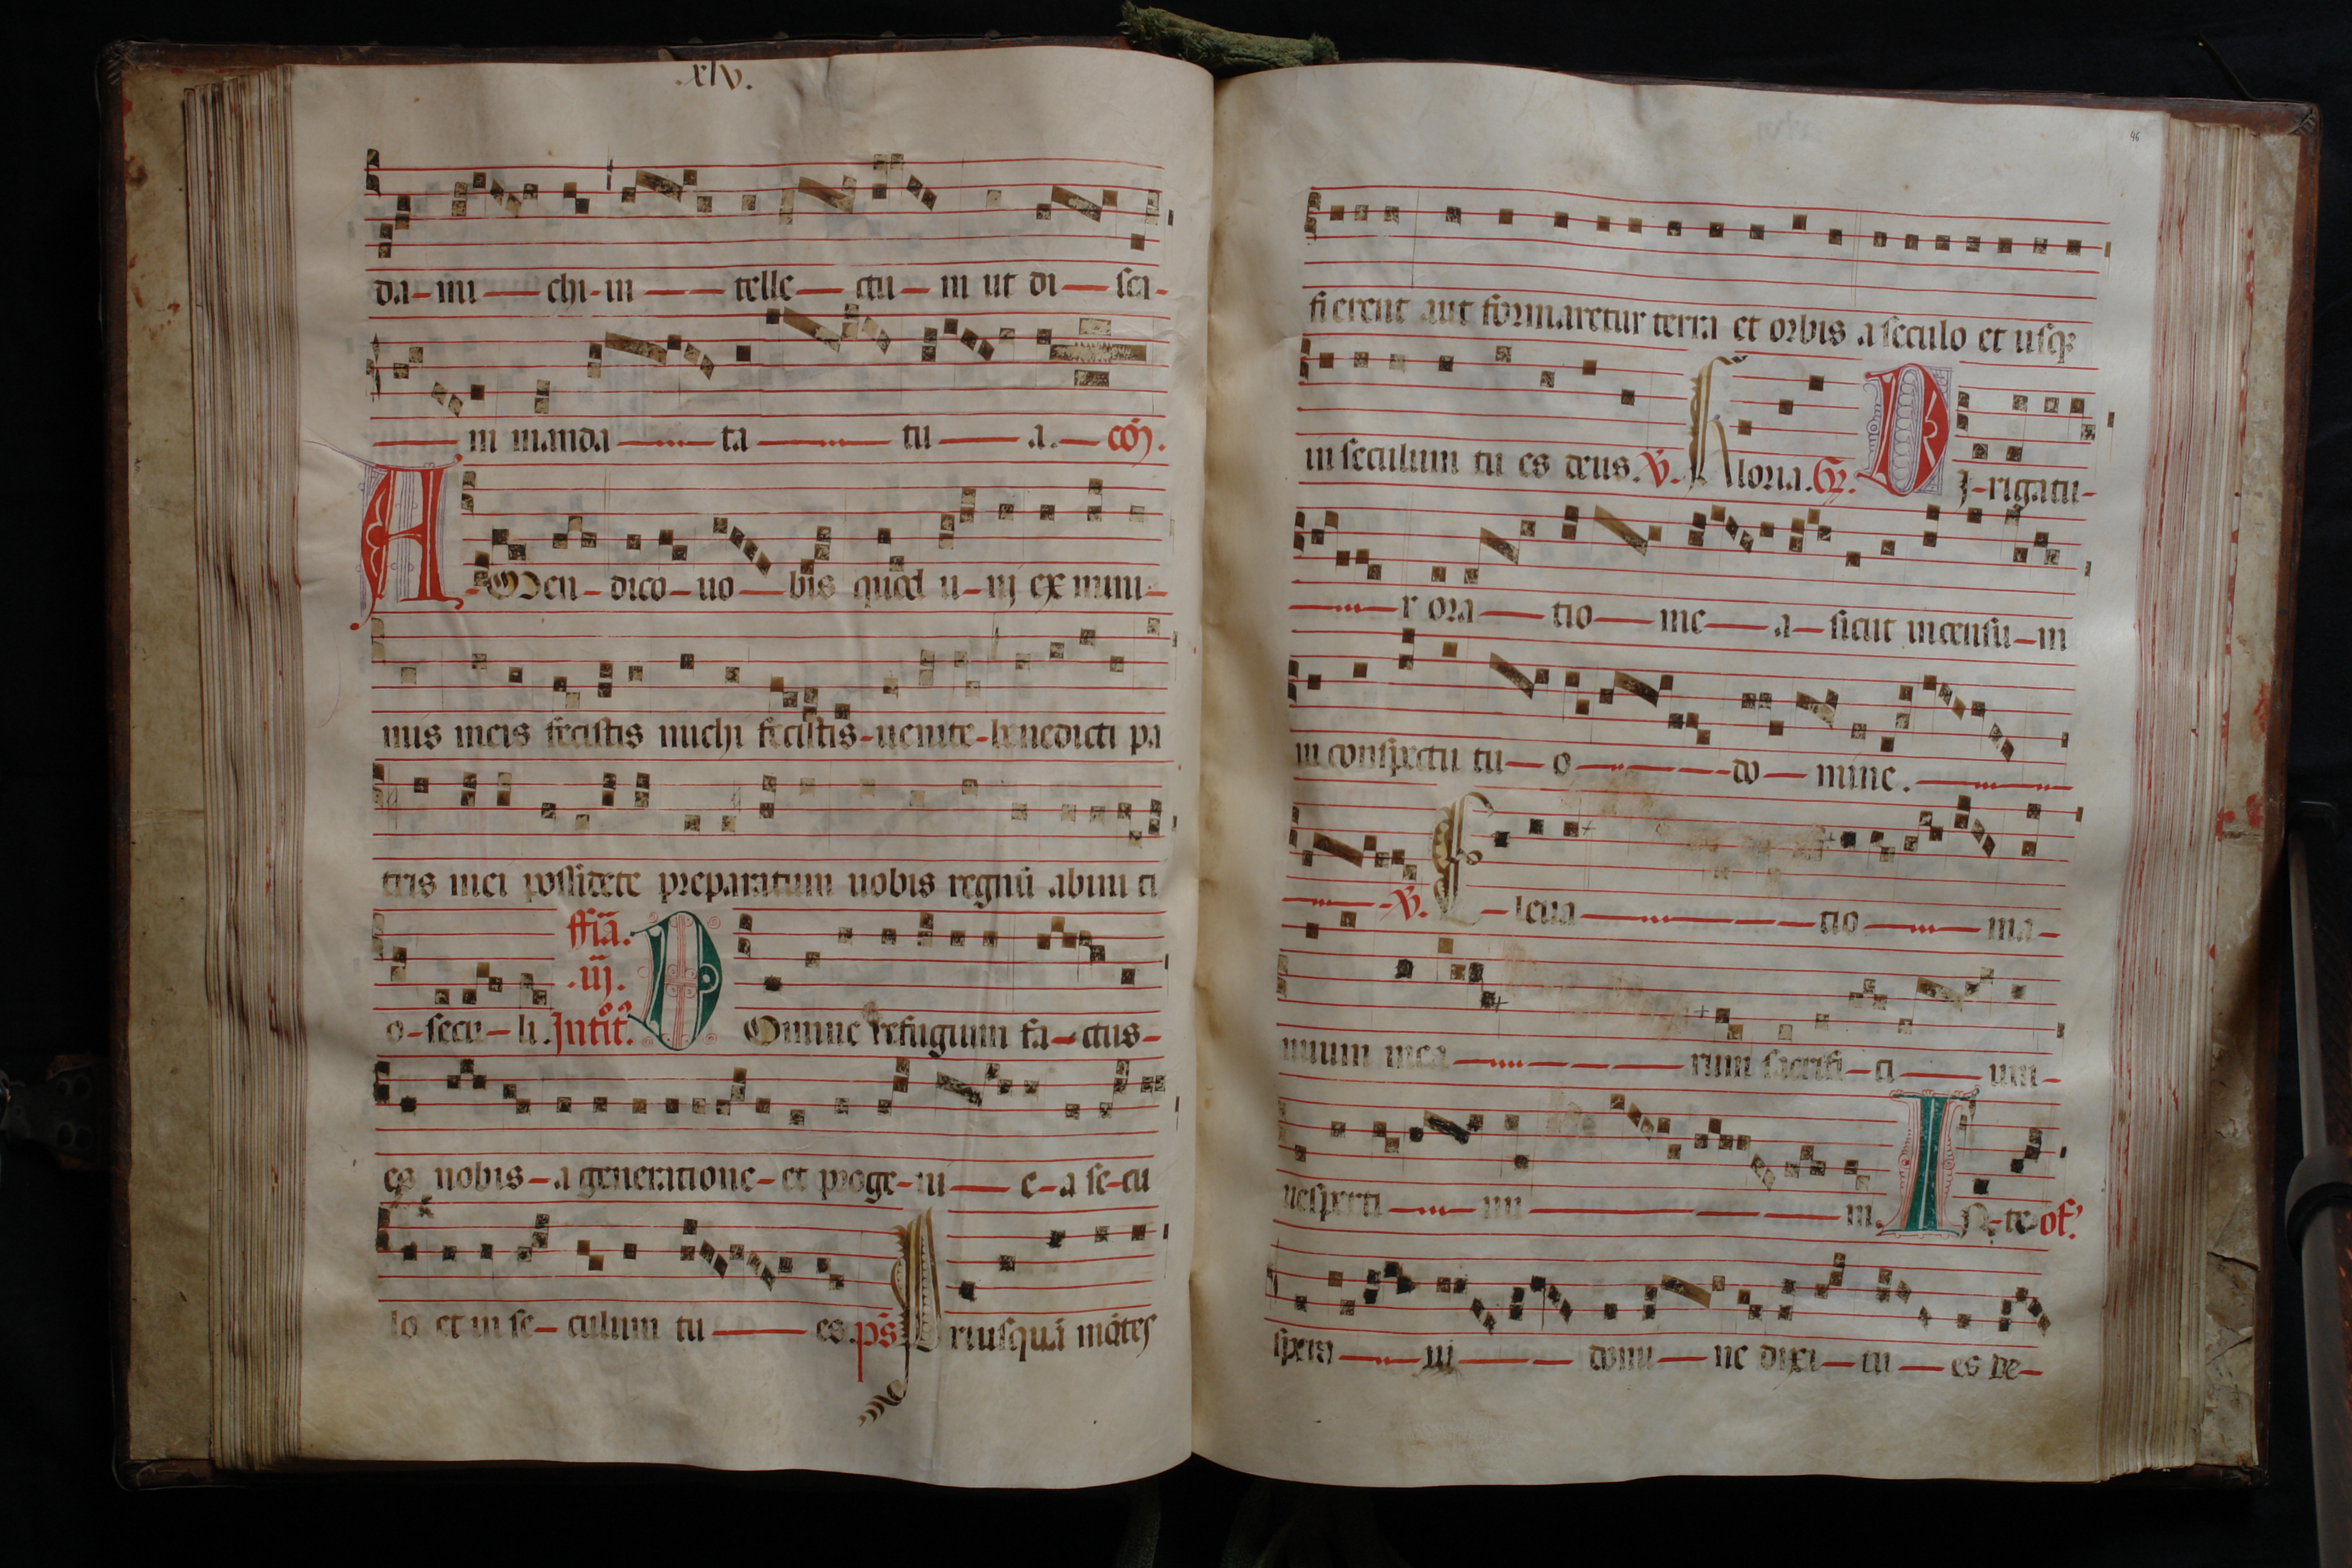 .xlv.
da-mi-chi-in-telle-ctu-m ut di-sci-
m manda-ta-tu-a.-cō.
A-Men-dico-uo-bis quod u-ni ex mini-
mis meis fecistis michi fecistis-uenite-benedicti pa
tris mei possidete preparatum uobis regnū abini ti
o-secu-li. ffia. .iij. Intit. DOmine refugium fa-ctus-
es nobis-a generatione-et proge-ni-e-a se-cu
lo et in se-culum tu-es. ps Priusquā mōtes
46
fierent aut formaretur terra et orbis a seculo et usq;
in seculum tu es deus. V. Gloria. Gr. DI-rigatu-
r ora-tio-me-a-sicut incensu-m
in conspectu tu-o-do-mine.
V. Eleua-tio-ma-
nuum mea-rum sacrifi-ci-um-
uesperti-nu-m. IN-te of.
spera-ui-domi-ne dixi-tu-es de-